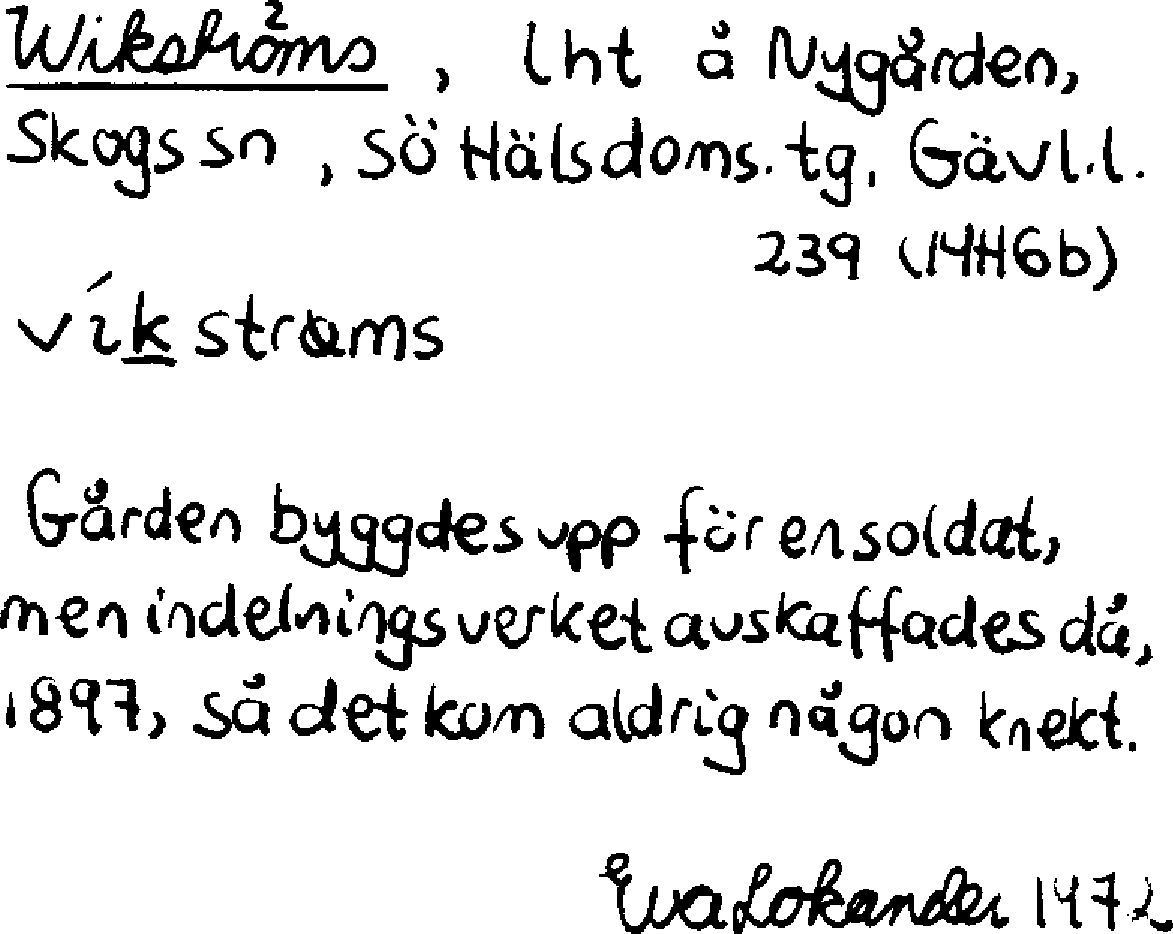 Wikströms 2, lht å Nygården,
Skogs sn, Sö Häls doms. tg, Gävl.l.
239 (14H6b)
víkstrøms
Gården byggdes upp för en soldat,
men indelningsverket avskaffades då,
1897, så det kom aldrig någon knekt.
Ewa Lokander 1972